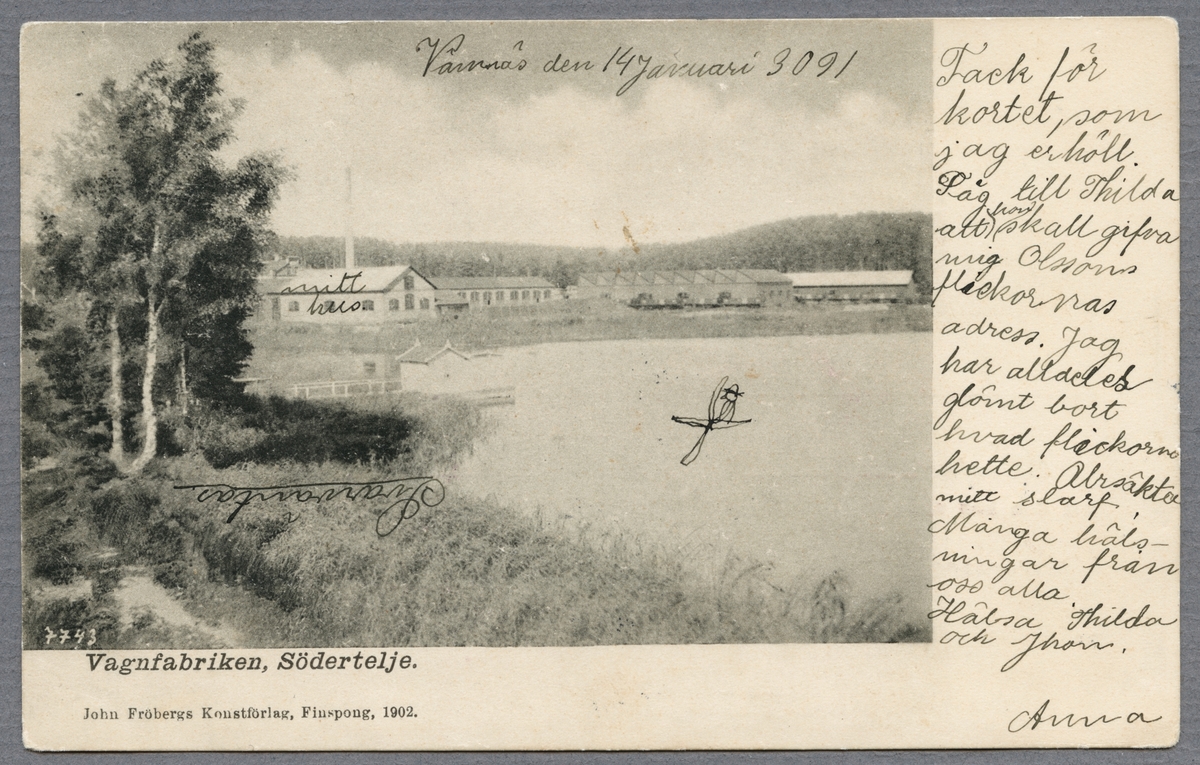 Vämnäs den 14 Januari 3091
mitt
hus
Svarväntas
7743
Vagnfabriken, Södertelje.
John Fröbergs Konstförlag, Finspong, 1902.
Tack för
kortet, som
jag erhöll.
Säg till Thilda
att hon skall gifva
mig Olssons
flickornas
adress. Jag
har alldeles
glömt bort
hvad flickorna
hette. Ursäkta
mitt slarf.
Många häls-
ningar från
oss alla
Hälsa Thilda
och Jhon.
Anna